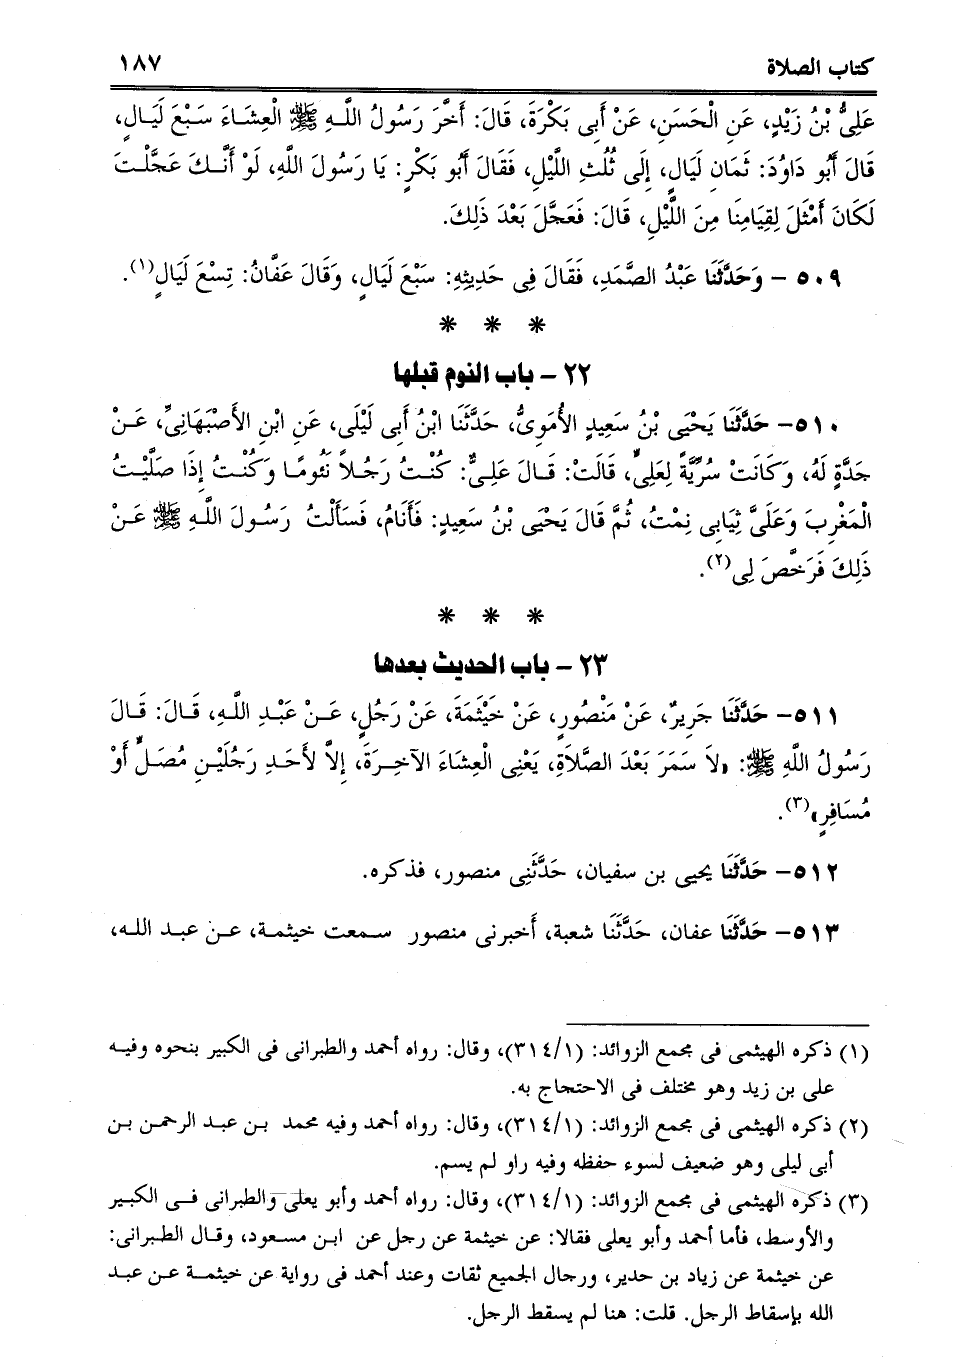 كتاب الصلاة ١٨٧
عَلِىُّ بْنُ زَيْدٍ، عَنِ الْحَسَنِ، عَنْ أَبِى بَكْرَةَ، قَالَ: أَخَّرَ رَسُولُ اللَّهِ ﷺ الْعِشَاءَ سَبْعَ لَيَالٍ،
قَالَ أَبُو دَاوُدَ: ثَمَانِ لَيَالٍ، إِلَى ثُلُثِ اللَّيْلِ، فَقَالَ أَبُو بَكْرٍ: يَا رَسُولَ اللَّهِ، لَوْ أَنَّكَ عَجَّلْتَ
لَكَانَ أَمْثَلَ لِقِيَامِنَا مِنَ اللَّيْلِ، قَالَ: فَعَجَّلَ بَعْدَ ذَلِكَ.
٥٠٩ – وَحَدَّثَنَا عَبْدُ الصَّمَدِ، فَقَالَ فِى حَدِيثِهِ: سَبْعَ لَيَالٍ، وَقَالَ عَفَّانُ: تِسْعَ لَيَالٍ(١).
* * *
٢٢ – باب النوم قبلها
٥١٠– حَدَّثَنَا يَحْيَى بْنُ سَعِيدٍ الأُمَوِىُّ، حَدَّثَنَا ابْنُ أَبِى لَيْلَى، عَنِ ابْنِ الأَصْبَهَانِىِّ، عَنْ
جَدَّةٍ لَهُ، وَكَانَتْ سُرِّيَّةً لِعَلِىٍّ، قَالَتْ: قَالَ عَلِىٌّ: كُنْتُ رَجُلاً نَئُومًا وَكُنْتُ إِذَا صَلَّيْتُ
الْمَغْرِبَ وَعَلَىَّ ثِيَابِى نِمْتُ، ثُمَّ قَالَ يَحْيَى بْنُ سَعِيدٍ: فَأَنَامُ، فَسَأَلْتُ رَسُولَ اللَّهِ ﷺ عَنْ
ذَلِكَ فَرَخَّصَ لِى(٢).
* * *
٢٣ – باب الحديث بعدها
٥١١– حَدَّثَنَا جَرِيرٌ، عَنْ مَنْصُورٍ، عَنْ خَيْثَمَةَ، عَنْ رَجُلٍ، عَنْ عَبْدِ اللَّهِ، قَالَ: قَالَ
رَسُولُ اللَّهِ ﷺ: «لاَ سَمَرَ بَعْدَ الصَّلاَةِ، يَعْنِى الْعِشَاءَ الآخِرَةَ، إِلاَّ لأَحَدِ رَجُلَيْنِ مُصَلٍّ أَوْ
مُسَافِرٍ»(٣).
٥١٢– حَدَّثَنَا يحيى بن سفيان، حَدَّثَنِى منصور، فذكره.
٥١٣– حَدَّثَنَا عفان، حَدَّثَنَا شعبة، أخبرنى منصور سمعت خيثمة، عن عبد الله،
(١) ذكره الهيثمى فى مجمع الزوائد: (٣١٤/١)، وقال: رواه أحمد والطبرانى فى الكبير بنحوه وفيه
على بن زيد وهو مختلف فى الاحتجاج به.
(٢) ذكره الهيثمى فى مجمع الزوائد: (٣١٤/١)، وقال: رواه أحمد وفيه محمد بن عبد الرحمن بن
أبى ليلى وهو ضعيف لسوء حفظه وفيه راو لم يسم.
(٣) ذكره الهيثمى فى مجمع الزوائد: (٣١٤/١)، وقال: رواه أحمد وأبو يعلى والطبرانى فى الكبير
والأوسط، فأما أحمد وأبو يعلى فقالا: عن خيثمة عن رجل عن ابن مسعود، وقال الطبرانى:
عن خيثمة عن زياد بن حدير، ورجال الجميع ثقات وعند أحمد فى رواية عن خيثمة عن عبد
الله بإسقاط الرجل. قلت: هنا لم يسقط الرجل.